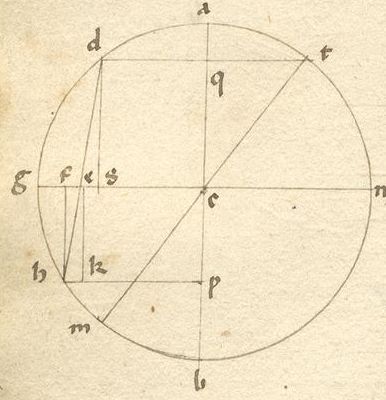 a
d t
q
g f e s n
c
h k p
m
b